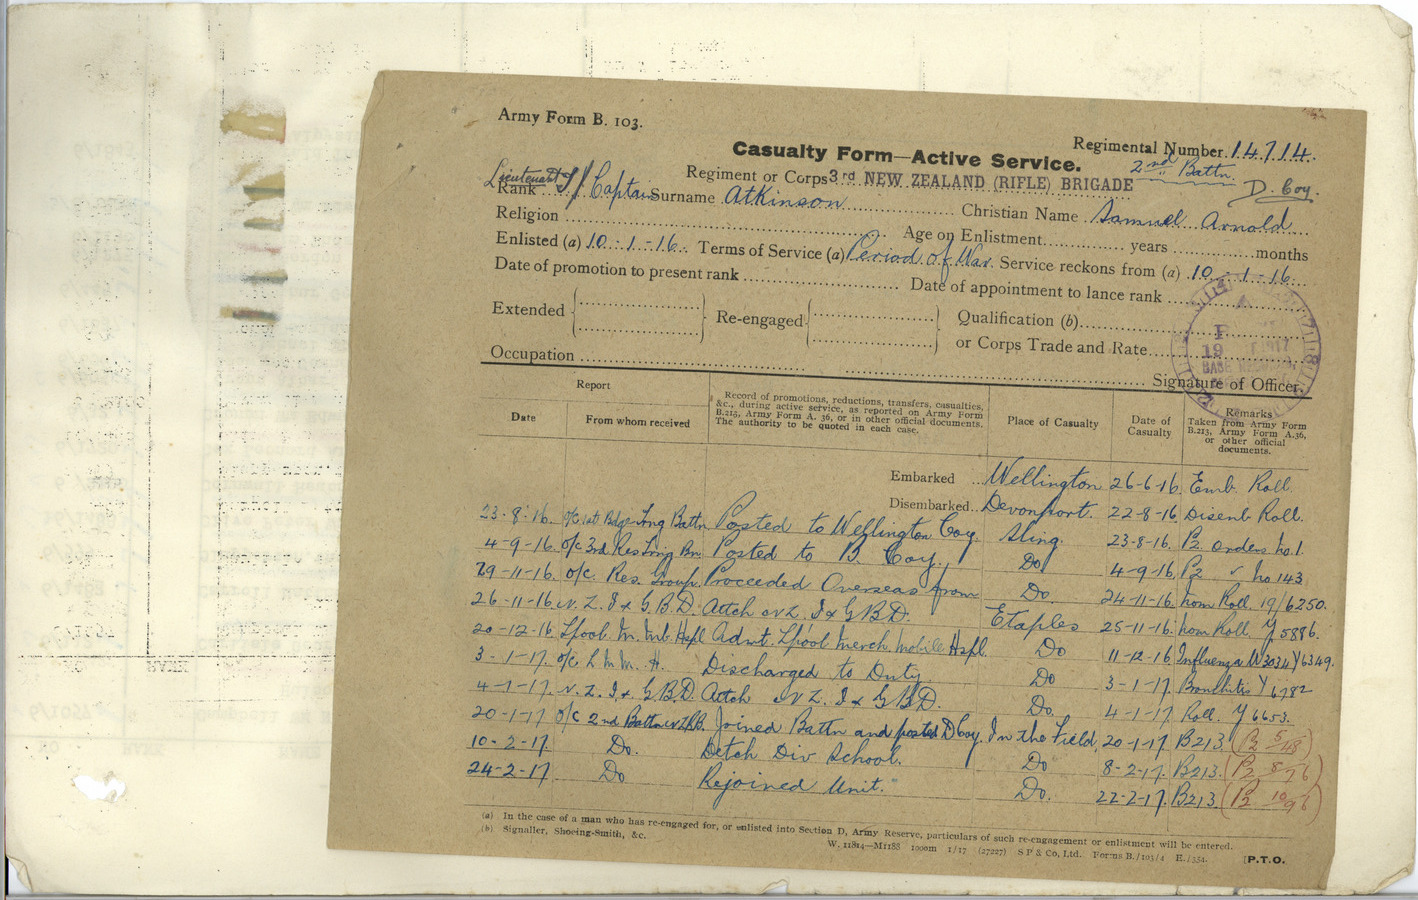 Army Form B. 103.
Casualty Form—Active Service.
Regimental Number 14714.
Regiment or Corps 3rd NEW ZEALAND (RIFLE) BRIGADE 2nd Battn. D. Coy.
Lieutenant
Rank Captain Surname Atkinson Christian Name Samuel Arnold
Religion Age on Enlistment years months
Enlisted (a) 10-1-16. Terms of Service (a) Period of War. Service reckons from (a) 10-1-16.
Date of promotion to present rank Date of appointment to lance rank
Extended Re-engaged Qualification (b)
or Corps Trade and Rate
Occupation Signature of Officer.
Report
Date From whom received
Record of promotions, reductions, transfers, casualties, &c., during active service, as reported on Army Form B.213, Army Form A. 36, or in other official documents. The authority to be quoted in each case.
Place of Casualty
Date of Casualty
Remarks
Taken from Army Form B.213, Army Form A.36, or other official documents.
Embarked Wellington 26-6-16. Emb. Roll.
Disembarked Devonport. 22-8-16 Disemb Roll.
23-8-16. o/c 1st Bdge Trng Battn. Posted to Wellington Coy. Sling. 23-8-16. P2 orders no.1.
4-9-16. o/c 3rd Res Trng Bn. Posted to B. Coy. Do 4-9-16. P2 " no 143
29-11-16. o/c. Res. Group. Proceeded Overseas from Do. 24-11-16. nom Roll 19/6250.
26-11-16 N.Z. I & G.B.D. Attch NZ. I & G B D. Etaples 25-11-16. nom Roll. Y 5886.
20-12-16 Lpool. M. Mb. Hspl Admt. Lpool Merch. mobile Hspl. Do 11-12-16. Influenza W3034 Y6349.
3-1-17. o/c L M M. H. Discharged to Duty Do 3-1-17. Bronchitis Y 6782
4-1-17. N.Z. I & G.B.D. Attch NZ. I & G B D. Do. 4-1-17. Roll. Y 6653.
20-1-17 o/c 2nd Battn NZRB. Joined Battn and posted D Coy. In the Field, 20-1-17. B213. (P2 5/48)
10-2-17. Do. Detch Div School. Do 8-2-17. B213. (P2 8/76)
24-2-17 Do Rejoined Unit. Do. 22-2-17. B213. (P2 10/96)
(a) In the case of a man who has re-engaged for, or enlisted into Section D, Army Reserve, particulars of such re-engagement or enlistment will be entered.
(b) Signaller, Shoeing-Smith, &c.
W. 11814—M1188 1000m 1/17 (27227) S P & Co, Ltd. Forms B./103/4 E./334. [P.T.O.